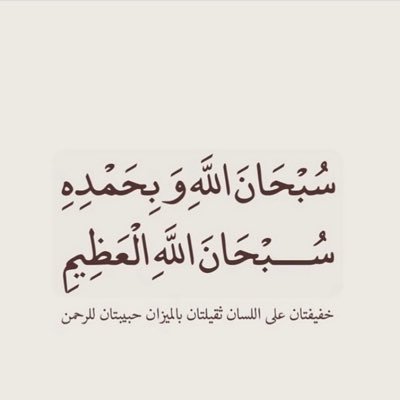 سُبْحَانَ اللَّهِ وَ بِحَمْدِهِ
سُـــبْحَانَ اللَّهِ الْعَظِيمِ
خفيفتان على اللسان ثقيلتان بالميزان حبيبتان للرحمن